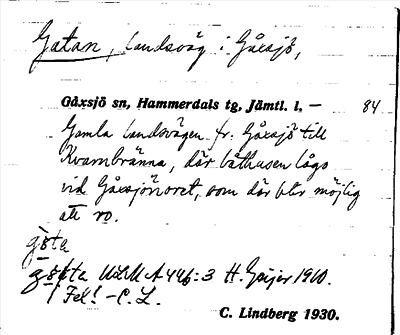 Gatan, landsväg i Gåxsjö,
Gåxsjö sn, Hammerdals tg, Jämtl. l, — 84
Gamla landsvägen fr. Gåxsjö till
Kvarnbränna, där båthusen lågo
vid Gåxsjönoret, som där blir möjlig
att ro.
ULMA 446:3 H. Geijer 1910.
Fel! - C. L.
C. Lindberg 1930.